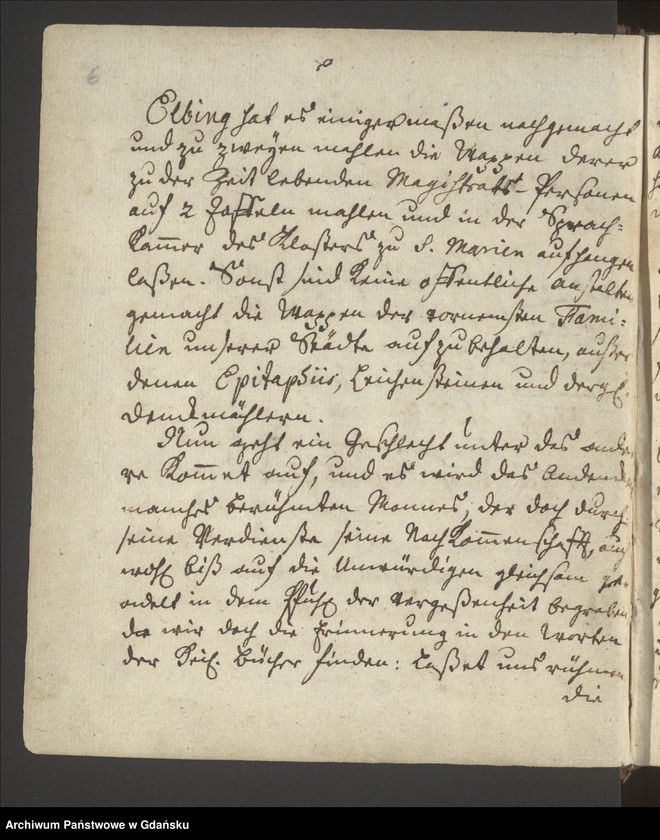 6
Elbing hat es einigermaßen nachgemacht
und zu zweyen mahlen die Wappen derer
zu der Zeit lebenden Magistrats-Personen
auf 2 Taffeln mahlen und in der Sprach=
Kammer des Klosters zu S. Marien aufhangen
laßen. Sonst sind keine offentliche anstalten
gemacht die Wappen der vornemsten Fami=
lien unserer Städte aufzubehalten, außer
denen Epitaphiis, Leichensteinen und dergl.
Denckmählern.
Nun geht ein Geschlecht unter das ande
re kommet auf, und es wird das Andencken
manches berühmten Mannes, der doch durch
seine Verdienste seine Nachkommenschafft, auch
wohl biß auf die Unwürdigen gleichsam ge=
adelt in dem der Vergeßenheit begraben
da wir doch die Erinnerung in den Worten
der Bücher finden: Laßet uns rühmen
die
Archiwum Państwowe w Gdańsku